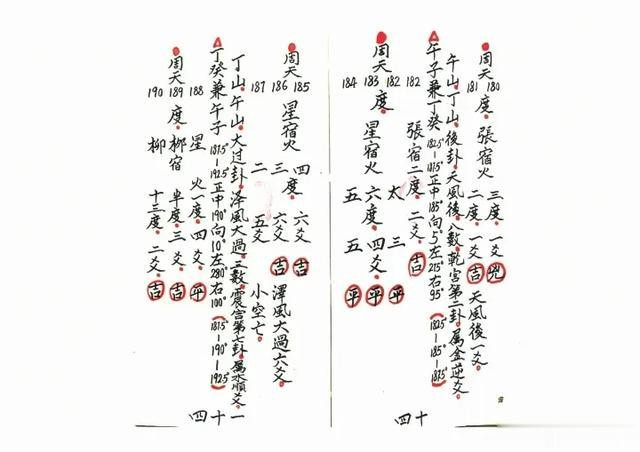 周天
180
181
度。張宿火
三度。一爻。凶
二度。一爻。吉
天風後一爻。
午山。丁山。後卦。天風後。八數。乾宮第二卦。屬金逆爻。
午子兼丁癸 1825°-1875°正中185°向5°左215°右95°(1825°-185°-1875°)
182 張宿二度。二爻。吉
周天
182
183
184
度。星宿火
太 三 平
六度。四爻。平
五 五 平
四十
周天
185
186
187
星宿火
四 六爻 吉
三度。六爻 吉
二 五爻 小空亡。
澤風大過六爻。
丁山。午山。大过卦。澤風大過。三數。震宮第七卦。屬木順爻。一
丁癸兼午子 1875°-1925°正中190°向10°左280°右100°(1815°-190°-1925°)
周天
188
189
190
度。
星 火一度。四爻。平
柳宿 半度。三爻。吉
柳 十三度。二爻。吉
四十